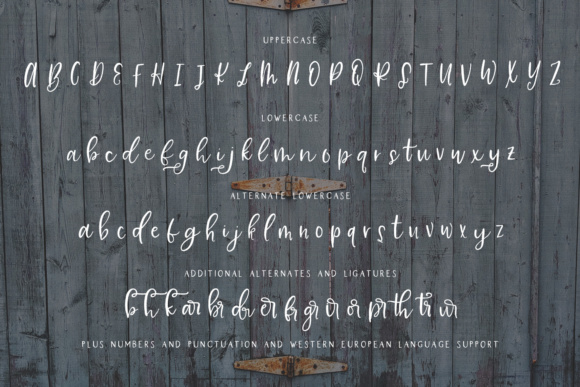 UPPERCASE
A B C D E F H I J K L M N O P Q R S T U V W X Y Z
LOWERCASE
a b c d e f g h i j k l m n o p q r s t u v w x y z
ALTERNATE LOWERCASE
a b c d e f g h i j k l m n o p q r s t u v w x y z
ADDITIONAL ALTERNATES AND LIGATURES
PLUS NUMBERS AND PUNCTUATION AND WESTERN EUROPEAN LANGUAGE SUPPORT